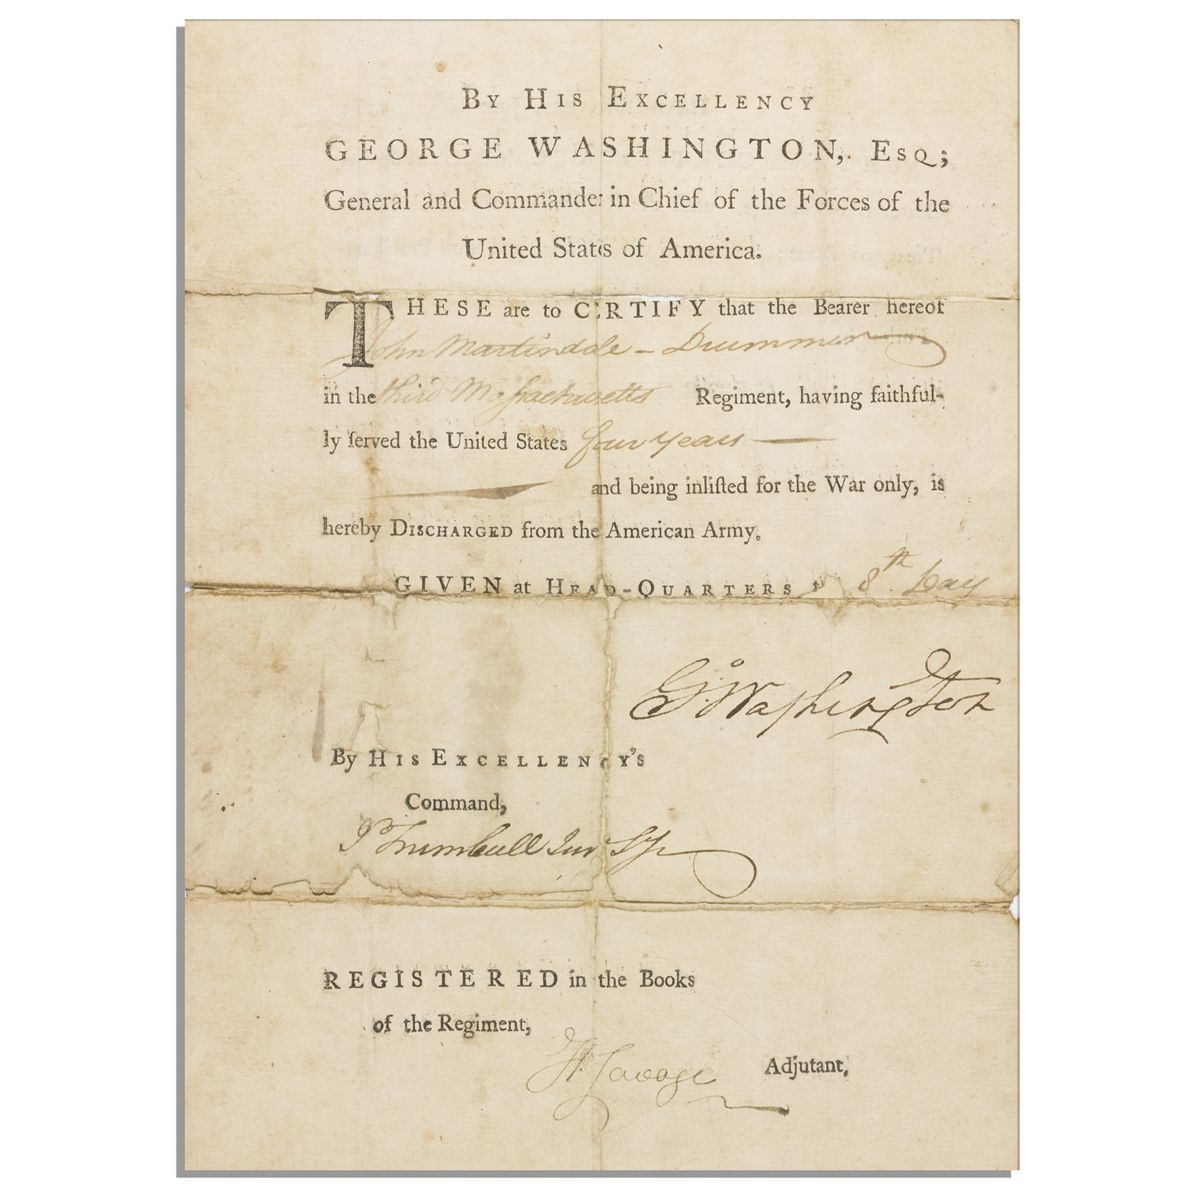 By His Excellency
GEORGE WASHINGTON, Esq;
General and Commander in Chief of the Forces of the
United States of America.
THESE are to CERTIFY that the Bearer hereof
John Martindale – Drummer
in the third Massachusetts Regiment, having faithful-
ly ſerved the United States four years —
and being inliſted for the War only, is
hereby Discharged from the American Army.
GIVEN at Head-Quarters 8th Day
G:o Washington
By His Excellency's
Command,
J Trumbull Junr Sy
REGISTERED in the Books
of the Regiment,
H. Savage Adjutant,